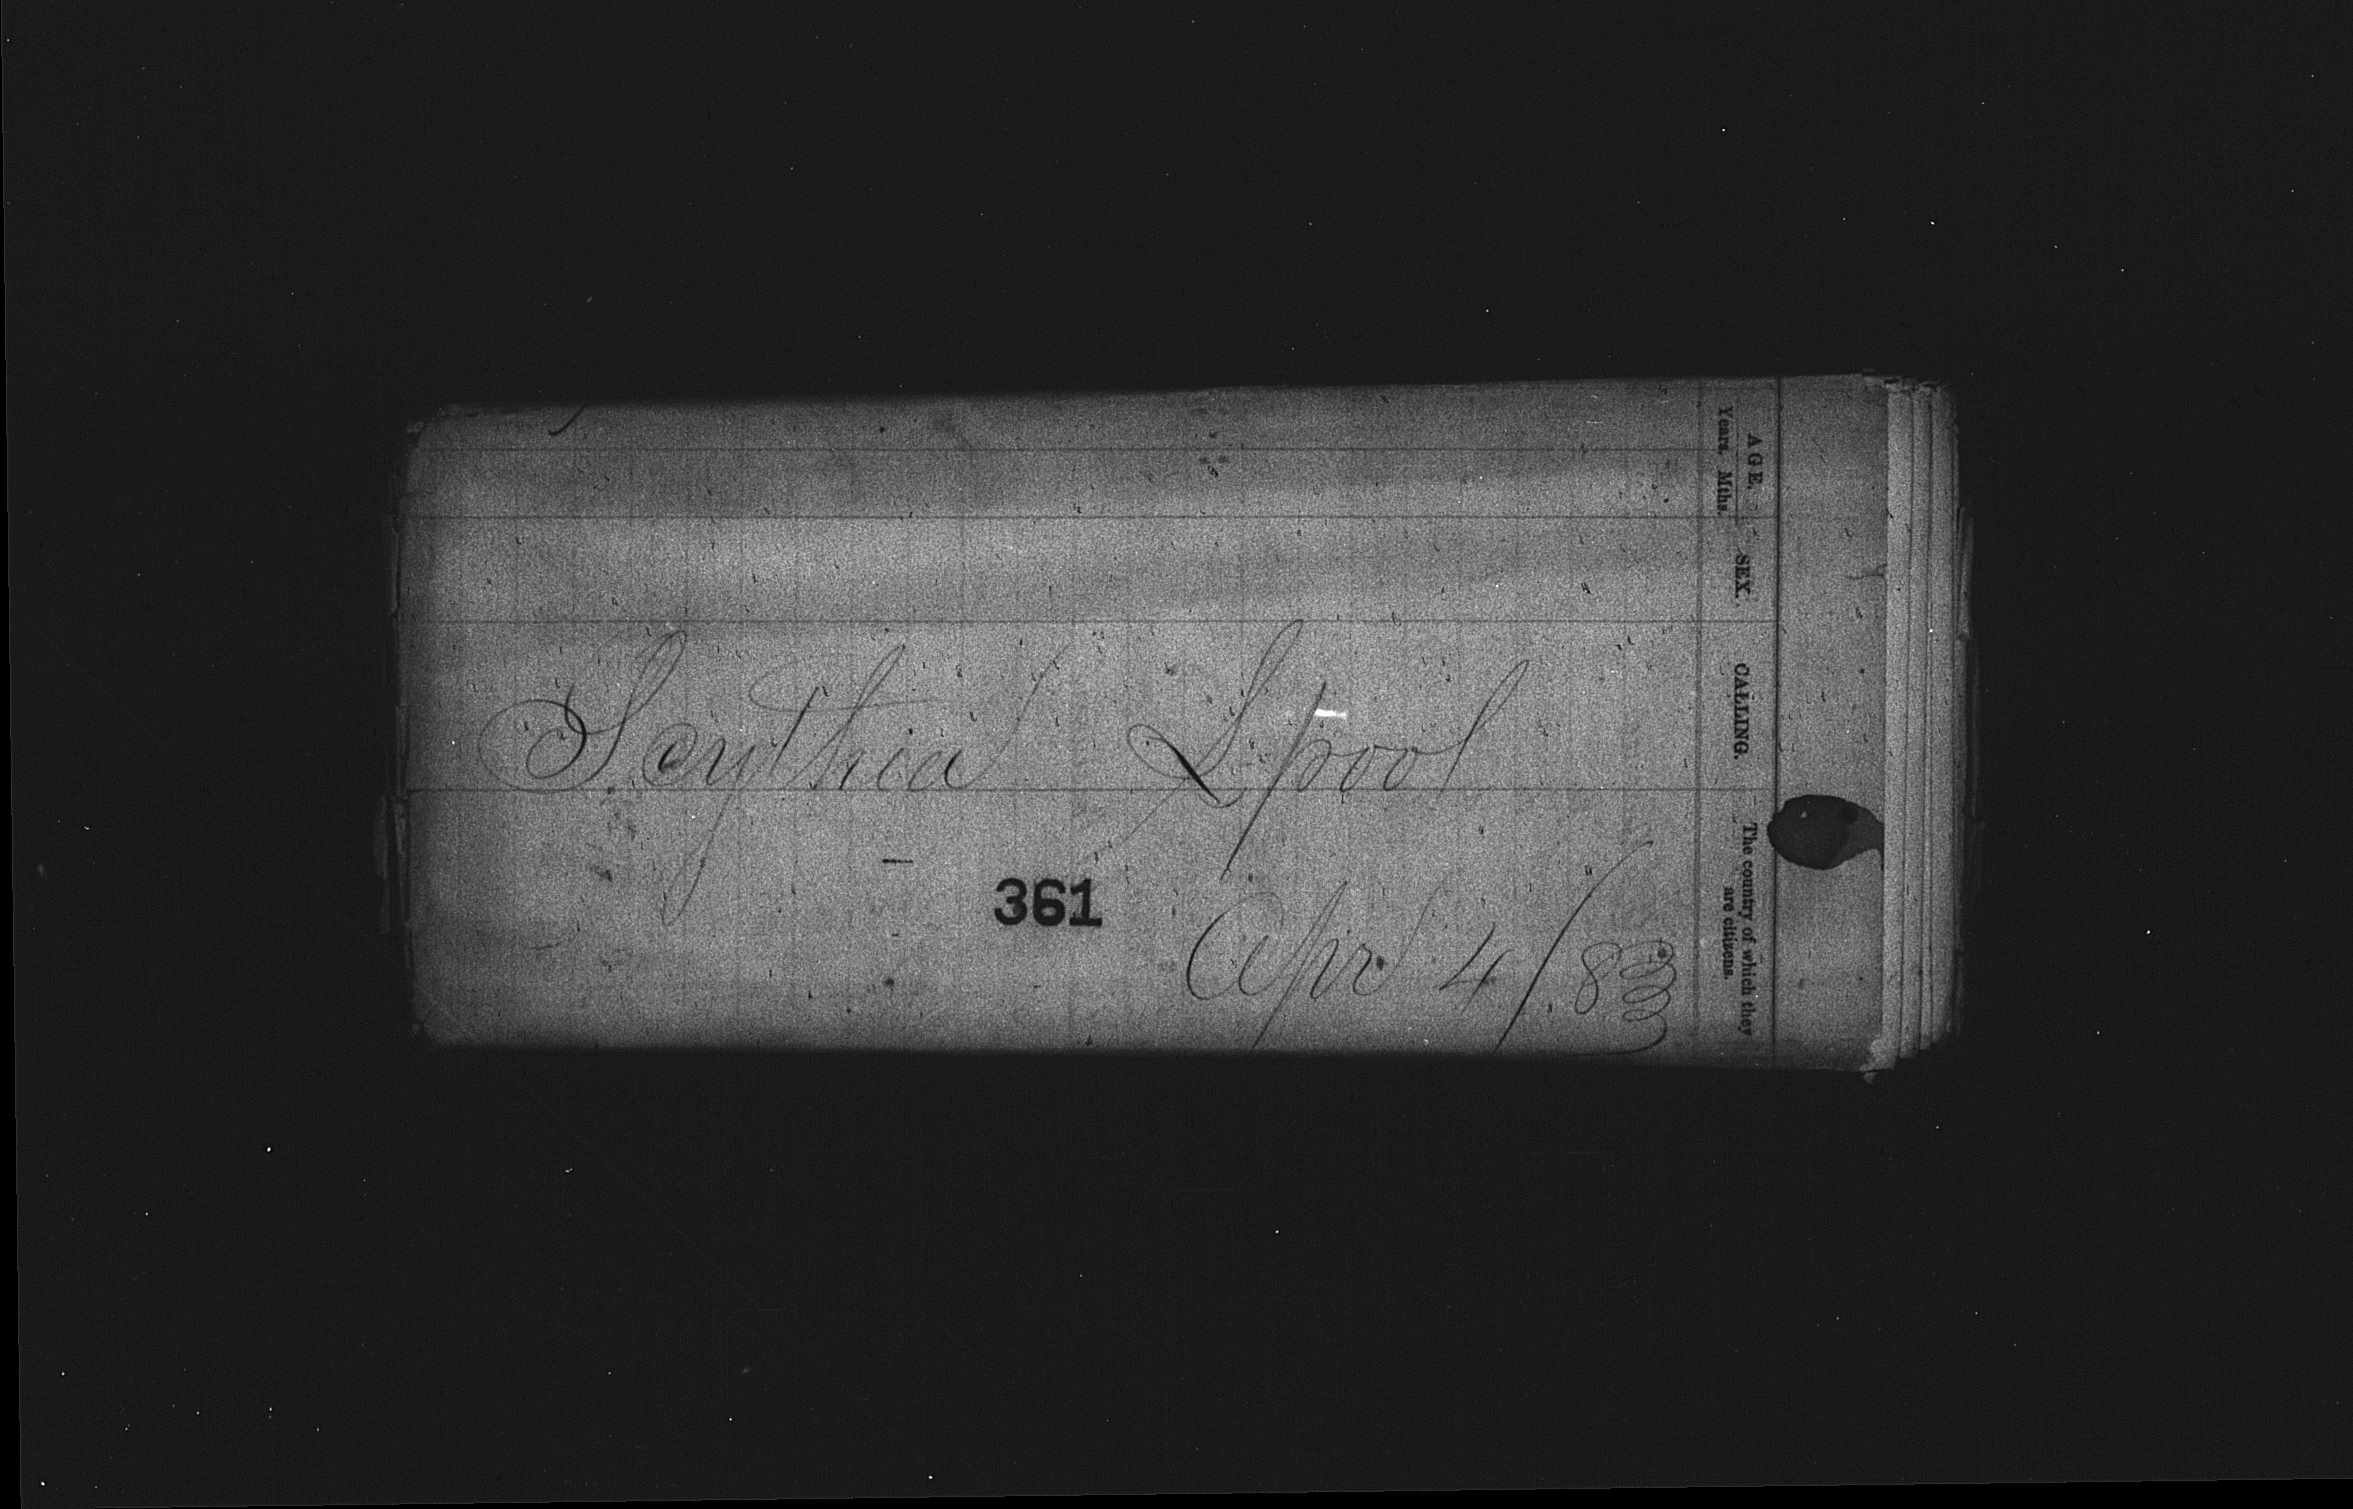 Scythia Lpool
361
Apr 4/83
AGE.
Years. Mths.
SEX.
CALLING.
The country of which they
are citizens.